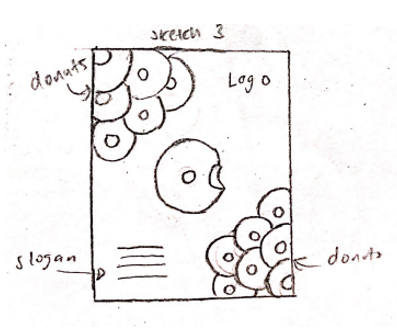 sketch 3
donuts
Logo
slogan
donuts